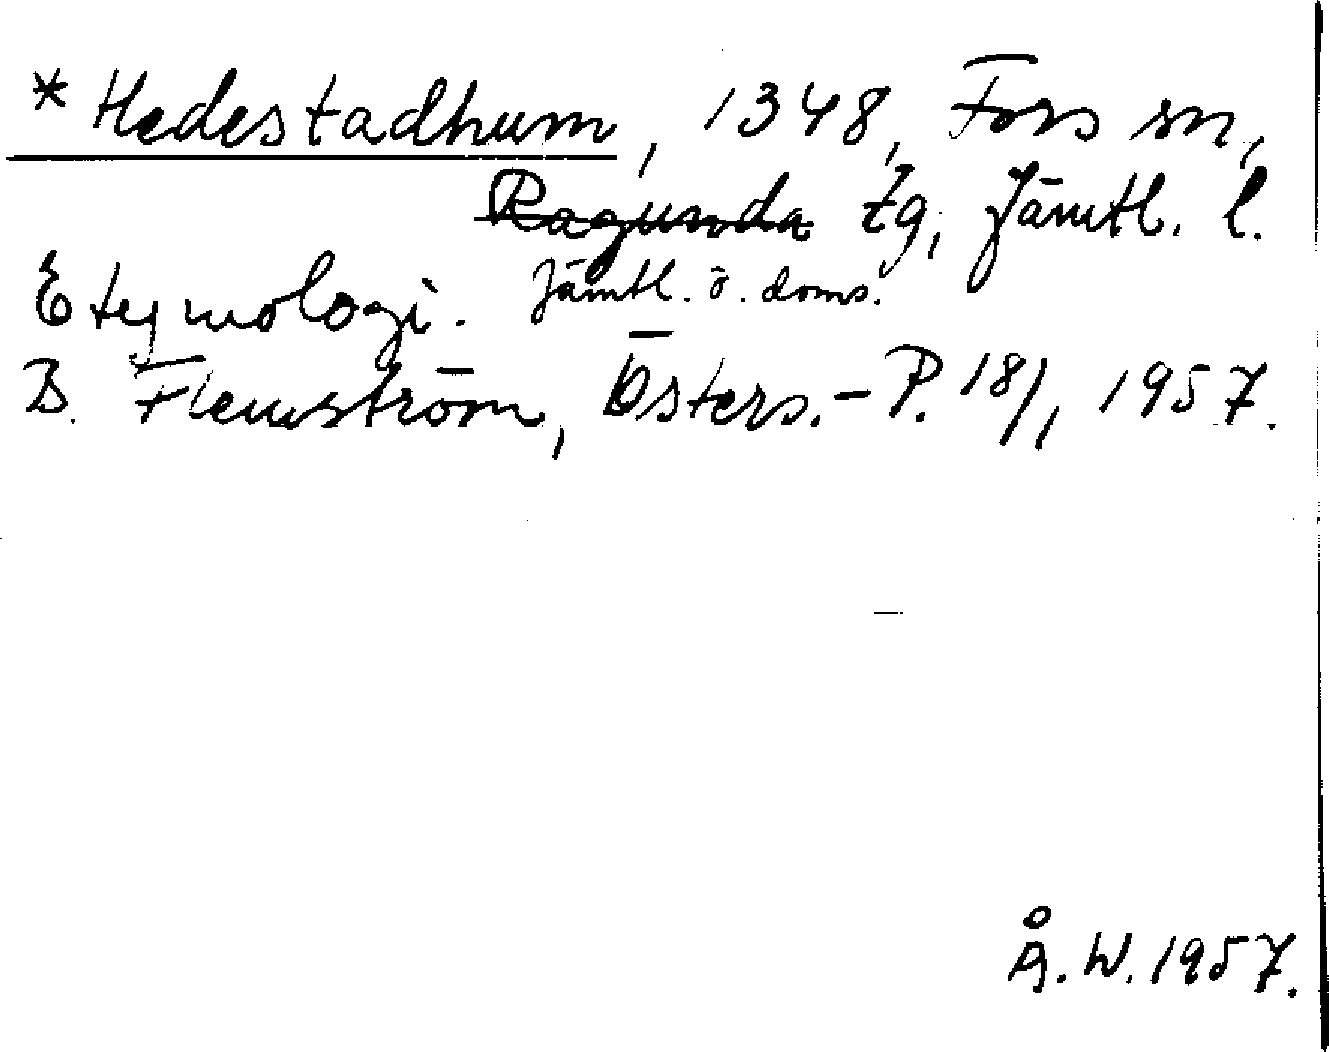 * Hedestadhum, 1348, Fors sn,
Ragunda tg, Jämtl. l.
Jämtl. ö. doms.
Etymologi.
B. Flemström, Östers.-P. 18/1 1957.
Å. W. 1957.